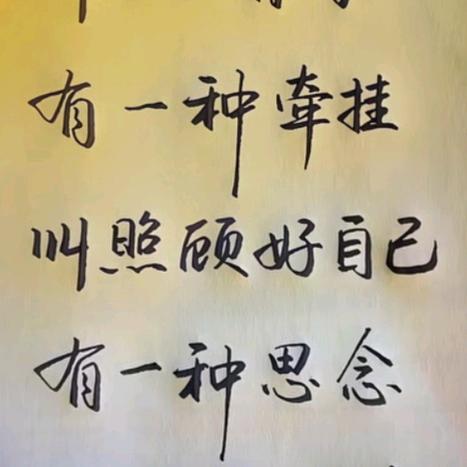 有一种牵挂
叫照顾好自己
有一种思念